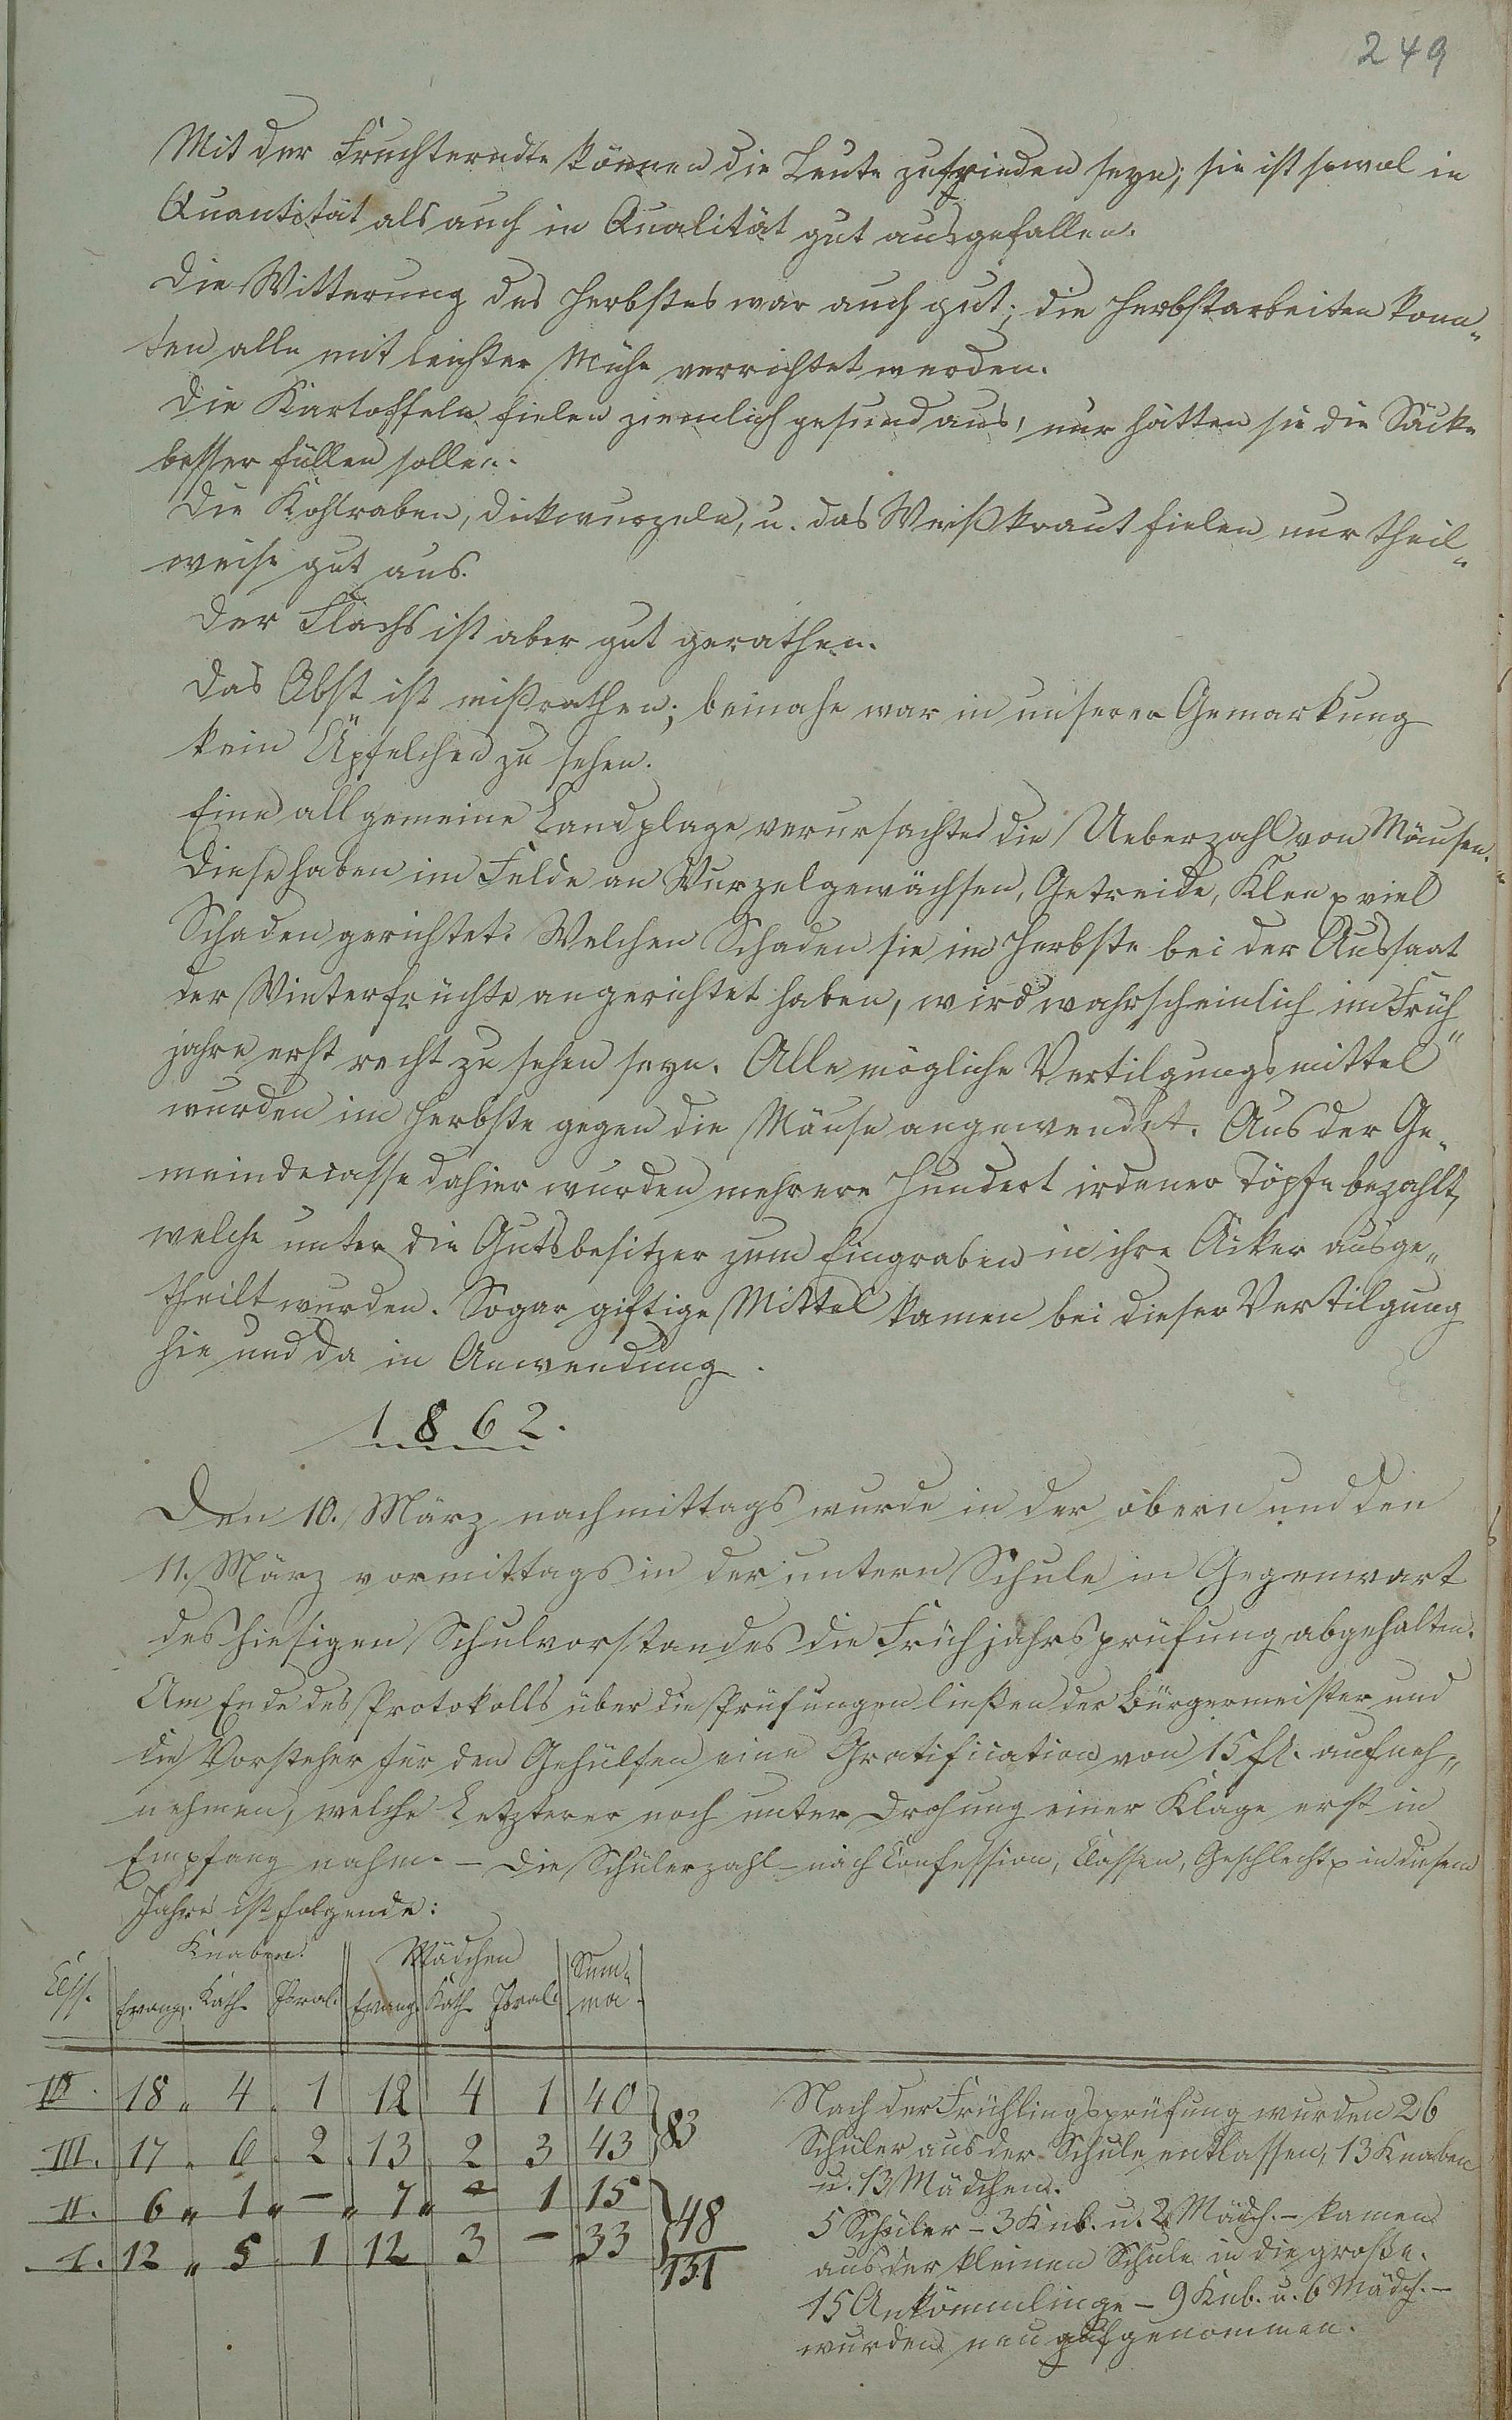 249
Mit der Fruchterndte können die Leute zufrieden seyn; sie ist sowol in
Quantität als auch in Qualität gut ausgefallen.
Die Witterung des Herbstes war auch gut; die Herbstarbeiten konn„
ten alle mit leichter Mühe verrichtet werden.
Die Kartoffeln fielen ziemlich gesund aus, nur hätten sie die Säcke
besser füllen sollen.
Die Kohlraben, Dickwurzeln, u. das Weißkraut fielen nur theil„
weise gut aus.
Der Flachs ist aber gut gerathen.
Das Obst ist mißrathen; beinahe war in unserer Gemarkung
kein Äpfelchen zu sehen.
Eine allgemeine Landplage verursachte die Ueberzahl von Mäusen.
Diese haben im Felde an Wurzelgewächsen, Getreide, Klee p viel
Schaden gerichtet. Welchen Schaden sie im Herbste bei der Aussaat
der Winterfrüchte angerichtet haben, wird wahrscheinlich im Früh„
jahre erst recht zu sehen seyn. Alle mögliche Vertilgungsmittel
wurden im Herbste gegen die Mäuse angewendet. Aus der Ge„
meindecasse dahier wurden mehrere Hundert irdener Töpfe bezahlt,
welche unter die Gutsbesitzer zum Eingraben in ihre Äcker ausge„
theilt wurden. Sogar giftige Mittel kamen bei dieser Vertilgung
hie und da in Anwendung.
1862.
Den 10. März nachmittags wurde in der obern und den
11. März vormittags in der untern Schule in Gegenwart
des hiesigen Schulvorstandes die Frühjahrsprüfung abgehalten.
Am Ende des Protokolls über die Prüfungen ließen der Bürgermeister und
die Vorsteher für den Gehülfen eine Gratification von 15 fl. aufneh„
nehmen, welche Letzterer noch unter Drohung einer Klage erst in
Empfang nahm. – Die Schülerzahl – nach Confession, Classen, Geschlecht p in diesem
Jahre ist folgende:
Knaben. Mädchen Sum„
Clss. Evang. Kath. Isral. Evang. Kath. Isral. ma
IV. 18 „ 4 „ 1 12 4 1 40
83
III. 17 „ 6 2 13 2 3 43
II. 6 „ 1 „ – „ 7 „ – 1 15
48
I. 12 „ 5 1 12 3 – 33
131
Nach der Frühlingsprüfung wurden 26
Schüler aus der Schule entlassen, 13 Knaben
u. 13 Mädchen.
5 Schüler – 3 Knb. u. 2 Mädch. – kamen
aus der kleinen Schule in die große.
15 Ankömmlinge – 9 Knb. u. 6 Mädch. –
wurden neu aufgenommen.